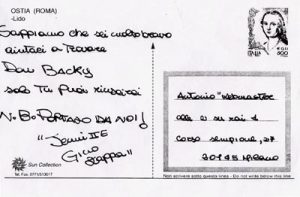 OSTIA (ROMA)
-Lido
Sappiamo che sei molto bravo
aiutaci a trovare
Don Backy
solo tu puoi riuscirci
N.B. PORTACO DA NOI!
"Jenni II E
Gino
Sun Collection
Tel. Fax. 0771/513017
ITALIA
800
Antonio "webmaster"
Corso Sempione, 27
20145 Milano
Non scrivere sotto questa linea - Do not write below this line